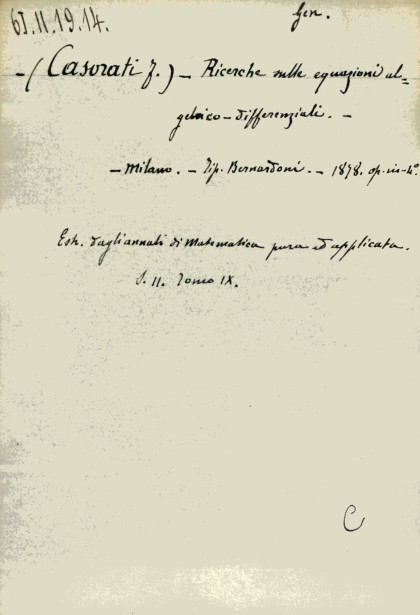 61.11.19.14.
Gen.
- (Casorati F.) - Ricerche sulle equazioni al=
gebrico-differenziali. -
- Milano. - Tip. Bernardoni. - 1878. op. in-4°.
Estr. dagli annali di Matematica pura ed applicata.
S. II. Tomo IX.
C